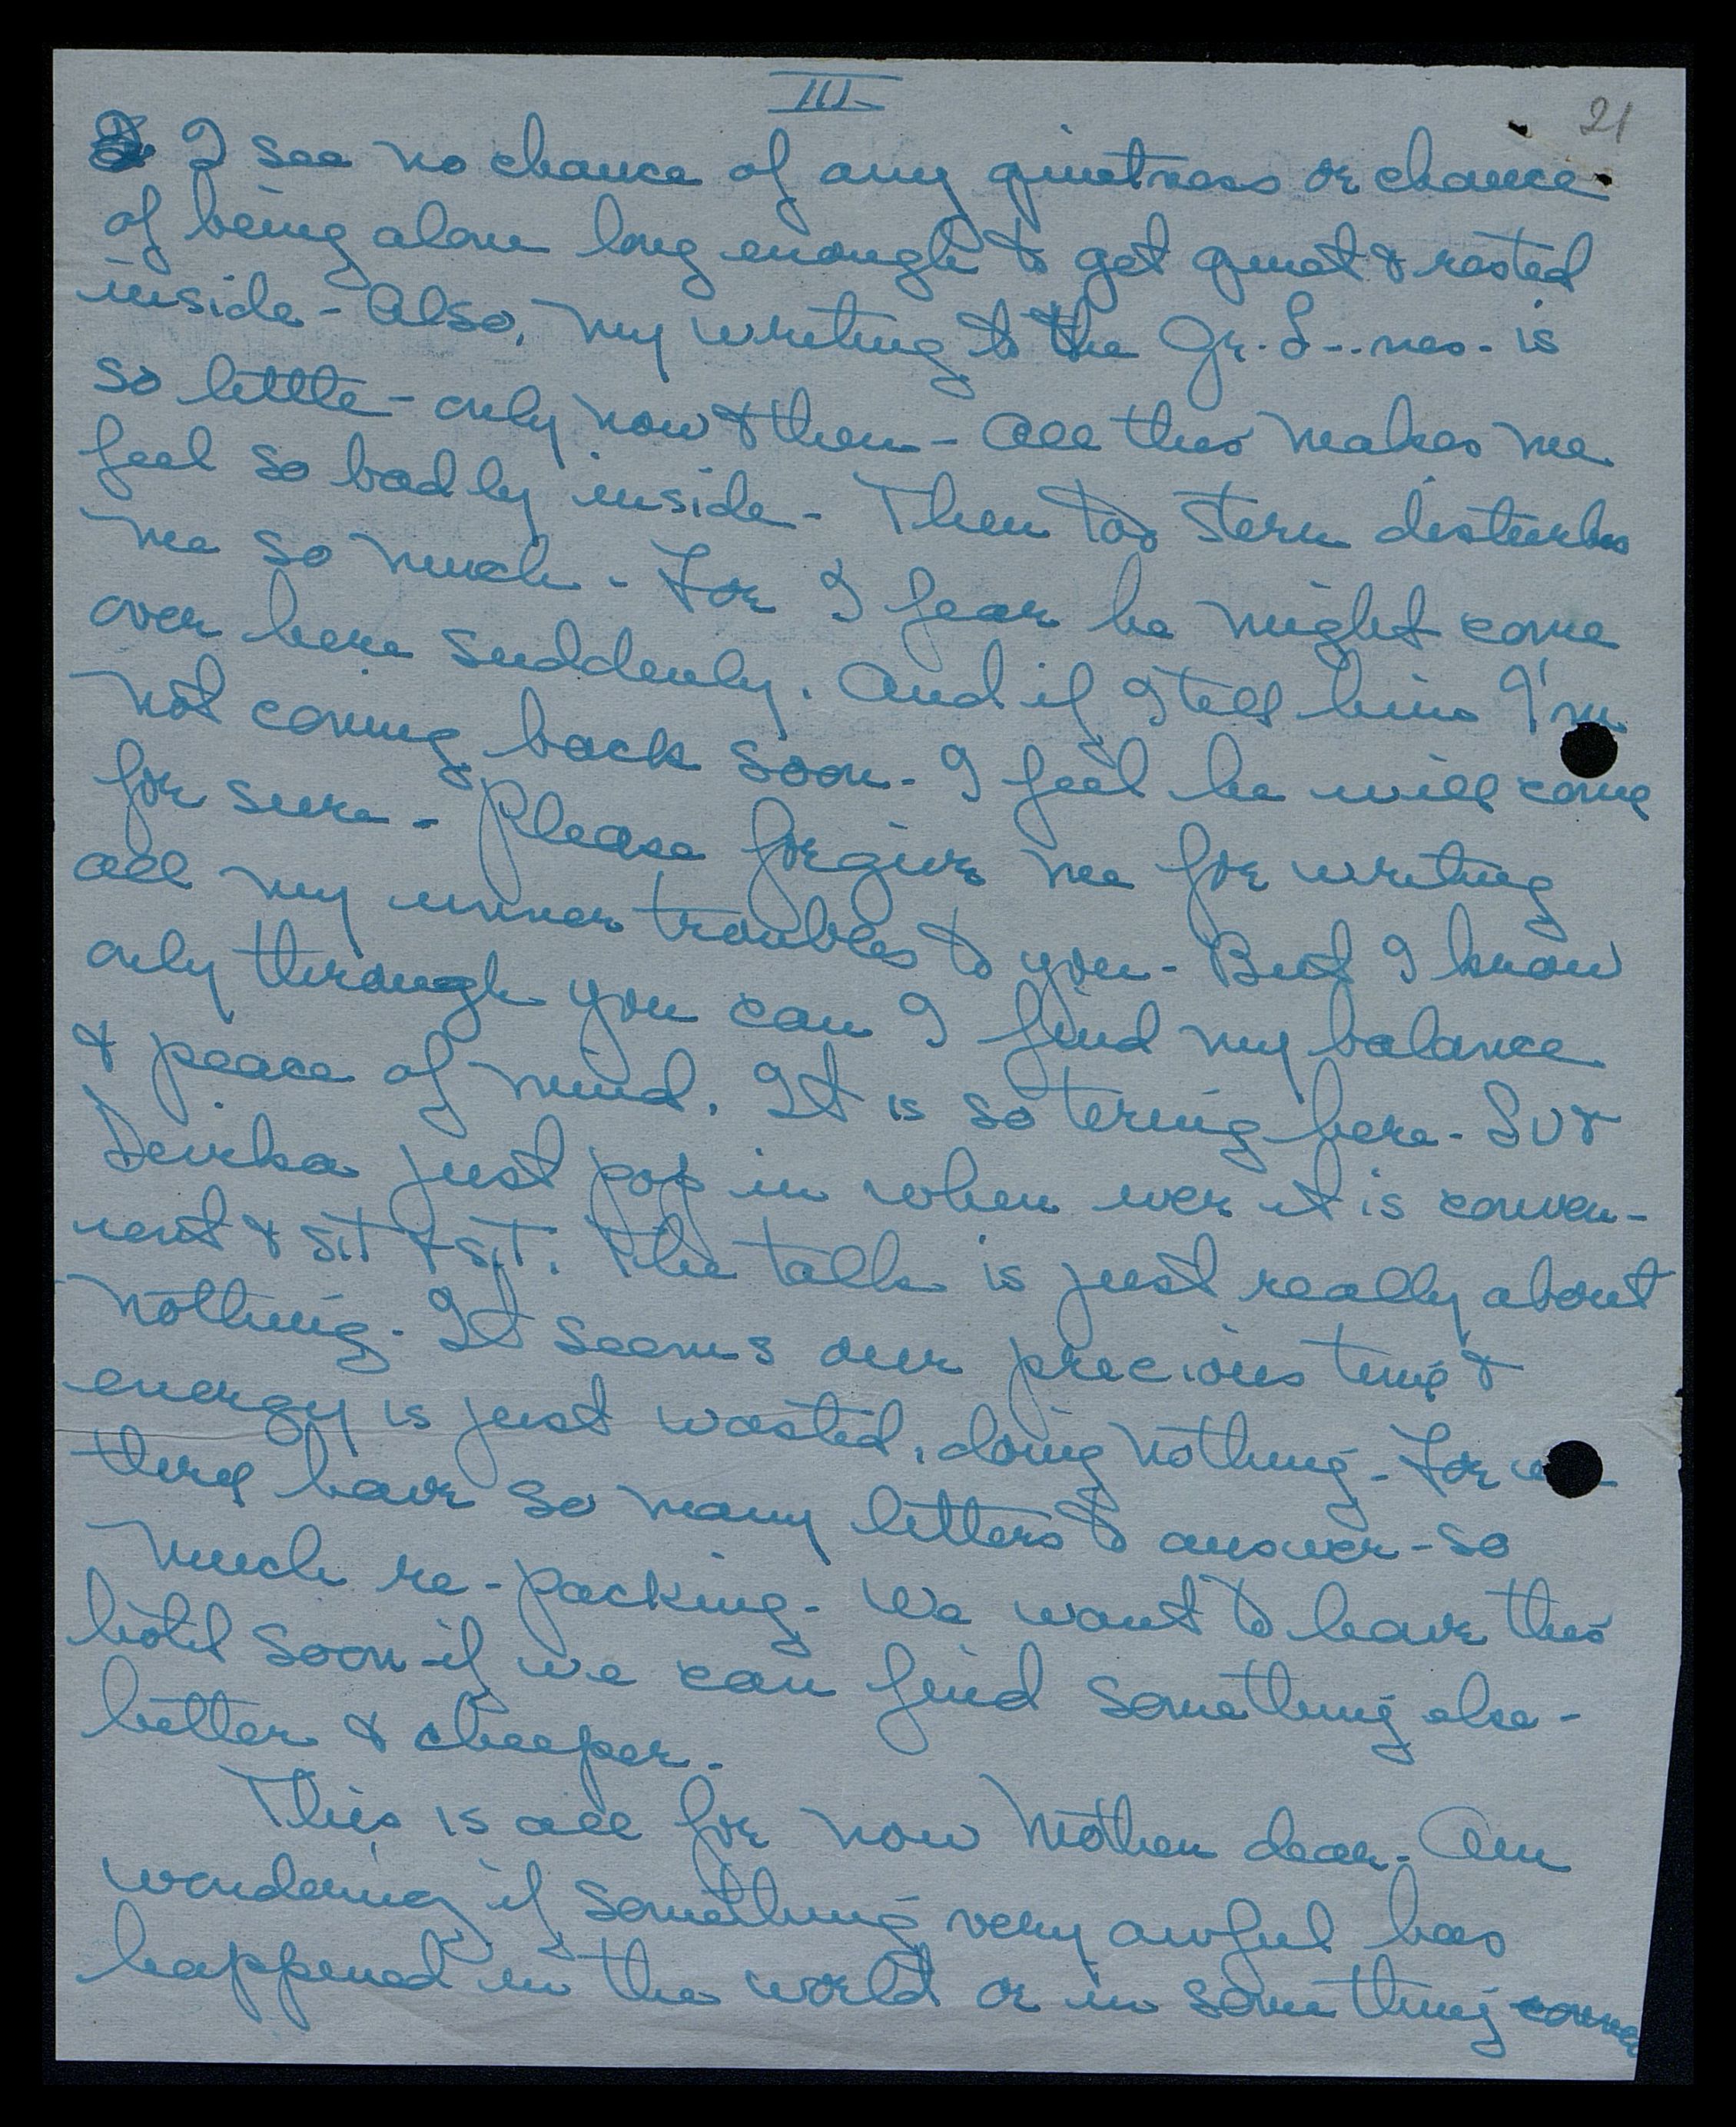 III
21
I see no chance of any quietness or chance
of being alone long enough to get quiet & rested
inside - Also, my writing to the Gr. S...nes. is
so little - only now & then - All this makes me
feel so badly inside - Then too Stern disturbs
me so much - For I fear he might come
over here suddenly. And if I tell him I'm
not coming back soon - I feel he will come
for sure - Please forgive me for writing
all my inner troubles to you - But I know
only through you can I find my balance
& peace of mind. It is so tiring here -
Devika just pop in when ever it is conven-
ient & sit & sit. The talk is just really about
nothing. It seems our precious time &
energy is just wasted, doing nothing - For
they have so many letters to answer - so
much re-packing - We want to leave this
hotel soon if we can find something else -
better & cheaper.
This is all for now Mother dear. Am
wondering if something very awful has
happened in the world or in some thing